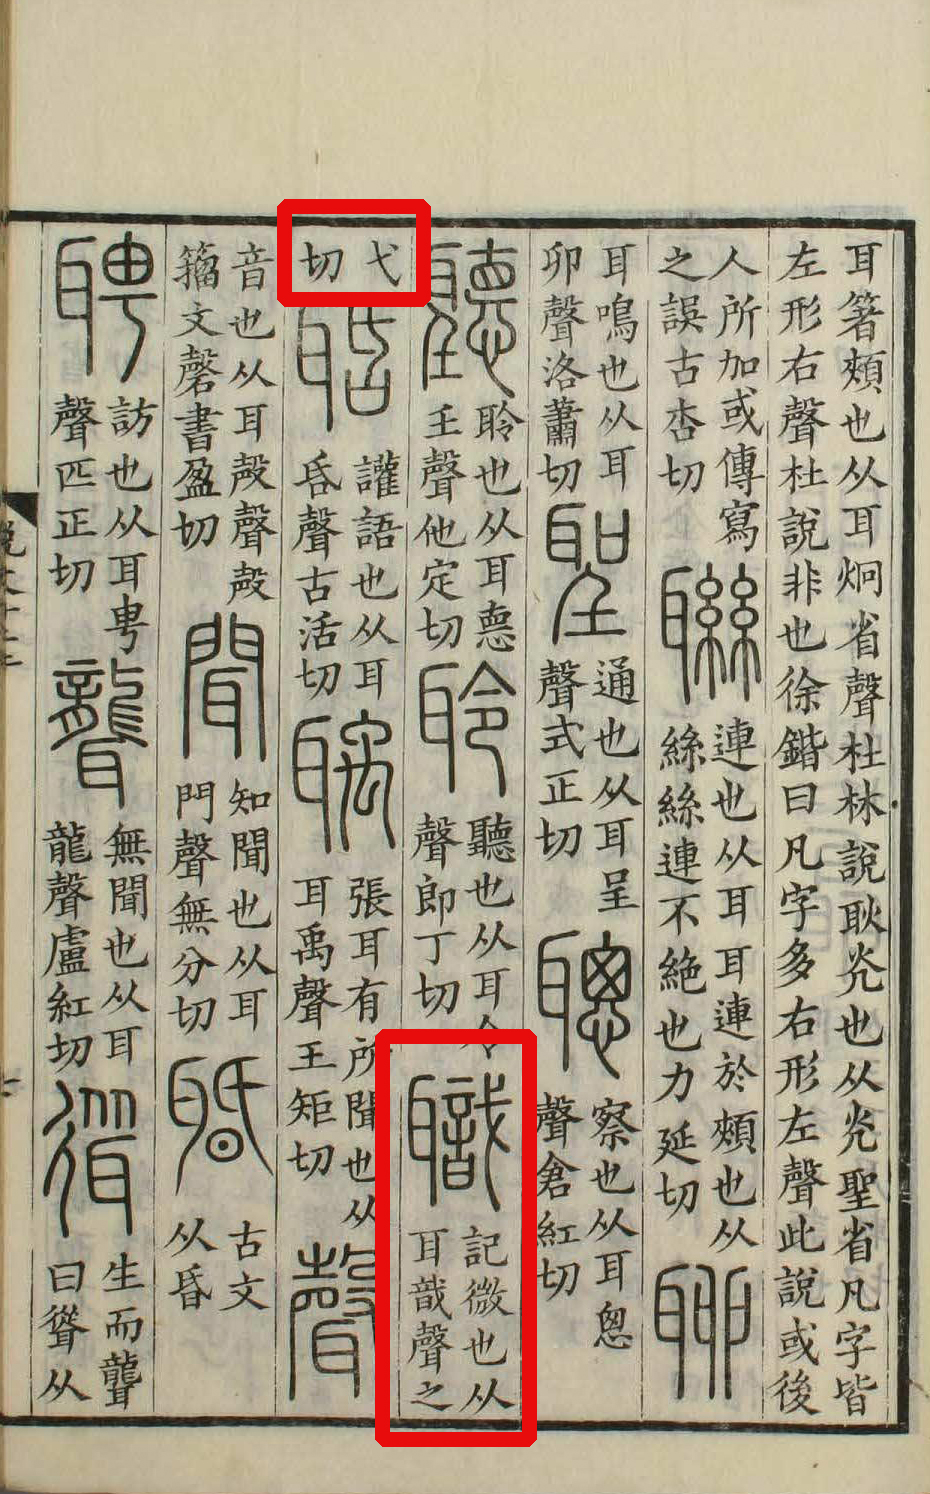 耳箸頰也从耳烓省聲杜林說耿灮也从灮聖省凡字皆
左形右聲杜說非也徐鍇曰凡字多右形左聲此說或後
人所加或傳寫
之誤古杏切
聯
連也从耳耳連於頰也从
絲絲連不絶也力延切
聊
耳鳴也从耳
卯聲洛蕭切
聖
通也从耳呈
聲式正切
聰
察也从耳悤
聲倉紅切
聽
聆也从耳悳
壬聲他定切
聆
聽也从耳令
聲郎丁切
職
記微也从
耳戠聲之
弋
切
聒
讙語也从耳
𠯑聲古活切
聥
張耳有所聞也从
耳禹聲王矩切
聲
音也从耳殸聲殸
籒文磬書盈切
聞
知聞也从耳
門聲無分切
䎽
古文
从昏
聘
訪也从耳甹
聲匹正切
聾
無聞也从耳
龍聲盧紅切
聳
生而聾
曰聳从